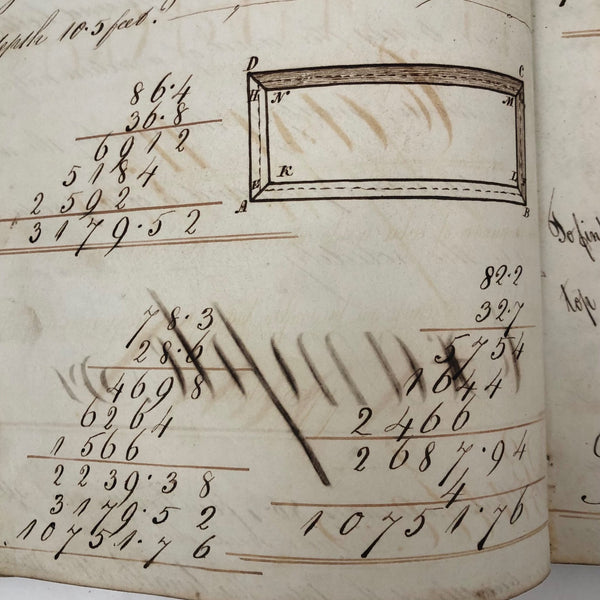 depth 10.5 feet.
86.4
36.8
6912
5184
2592
3179.52
D C
H N M
E K L
A B
78.3
28.6
4698
6264
1566
2239.38
3179.52
10751.76
82.2
32.7
5754
1644
2466
2687.94
4
10751.76
top